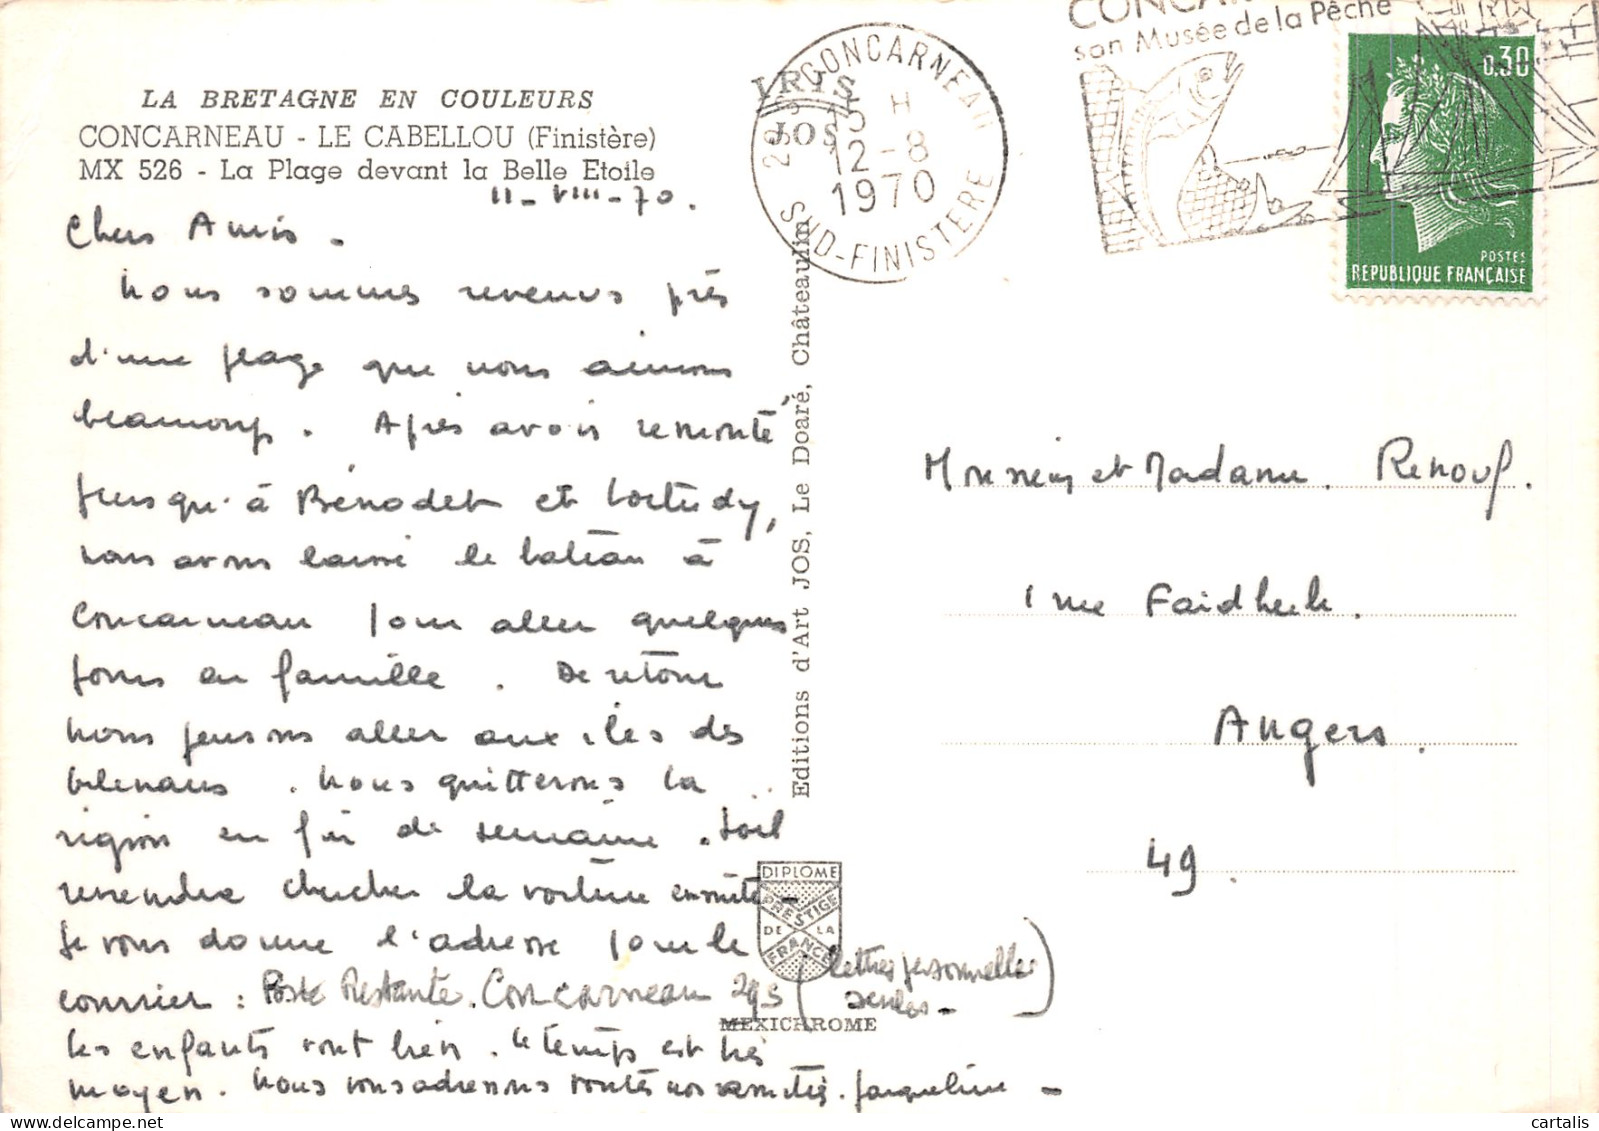 LA BRETAGNE EN COULEURS
CONCARNEAU - LE CABELLOU (Finistère)
MX 526 - La Plage devant la Belle Etoile
11-VIII-70.
Chers Amis -
Nous sommes revenus près
d'une plage que nous aimons
beaucoup. Après avoir remonté
jusqu'à Bénodet et Loctudy,
nous avons laissé le bateau à
Concarneau pour aller quelques
jours en famille. De retour
nous pensons aller aux îles des
Glénans. Nous quitterons la
région en fin de semaine.
revendre chercher la voiture ensuite -
Je vous donne l'adresse pour le
courrier : Poste Restante. Concarneau 29S (lettres personnelles
seules -)
Les enfants vont bien. Le temps est très
moyen. Nous vous adressons toutes nos amitiés. Jacqueline -
Editions d'Art JOS, Le Doaré, Châteaulin
IRIS
JOS
DIPLOME
PRESTIGE
DE LA
FRANCE
MEXICHROME
CONCARNEAU
15 H
12-8
1970
SUD-FINISTERE
son Musée de la Pêche
0,30
POSTES
REPUBLIQUE FRANÇAISE
Monsieur et Madame. Renouf.
1 rue Faidherbe.
Angers.
49.
cartalis
delcampe.net